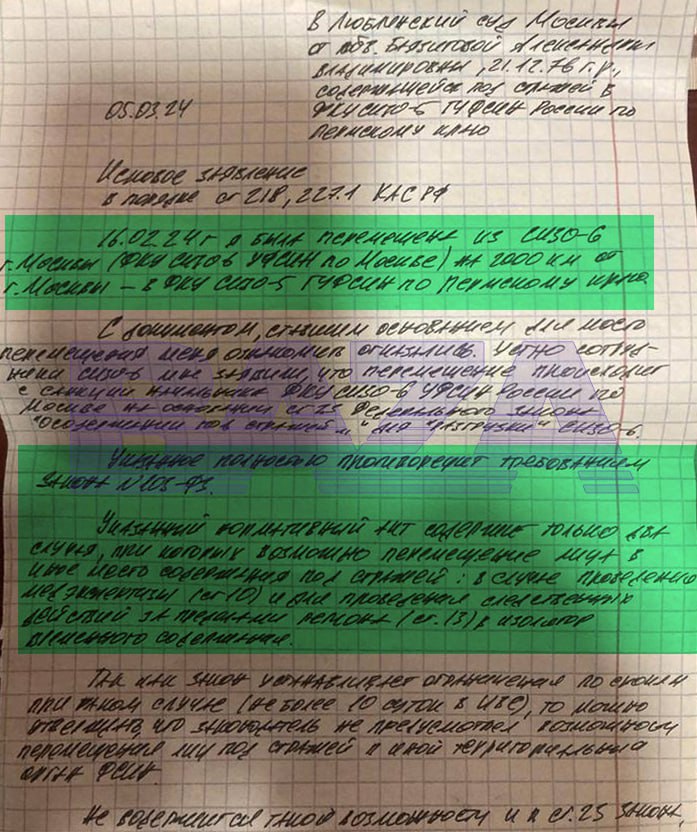 В Люблинский суд Москвы
от обв. Баязитовой Александры
Владимировны, 21.12.76 г.р.,
содержащейся под стражей в
ФКУ СИЗО-5 ГУФСИН России по
Пермскому краю
05.03.24
Исковое заявление
в порядке ст 218, 227.1 КАС РФ
16.02.24 г я была перемещена из СИЗО-6
г. Москвы (ФКУ СИЗО6 УФСИН по Москве) на 2000 км от
г. Москвы – в ФКУ СИЗО-5 ГУФСИН по Пермскому краю.
С документом, ставшим основанием для моего
перемещения меня ознакомить отказались. Устно сотруд-
ники СИЗО-6 мне заявили, что перемещение происходит
с санкции начальника ФКУ СИЗО-6 УФСИН России по
Москве на основании ст 25 Федерального закона
"О содержании под стражей..." для "разгрузки" СИЗО-6.
Указанное полностью противоречит требованиям
закона N 103-ФЗ.
Указанный нормативный акт содержит только два
случая, при которых возможно перемещение лица в
иное место содержания под стражей: в случае проведения
мед экспертизы (ст 10) и для проведения следственных
действий за пределами региона (ст. 13) в изолятор
временного содержания.
Так как закон устанавливает ограничения по срокам
при таком случае (не более 10 суток в ИВС), то можно
утверждать, что законодатель не предусмотрел возможности
перемещения лиц под стражей в иной территориальный
орган ФСИН.
Не содержится такой возможности и в ст. 25 Закона,
BAZA